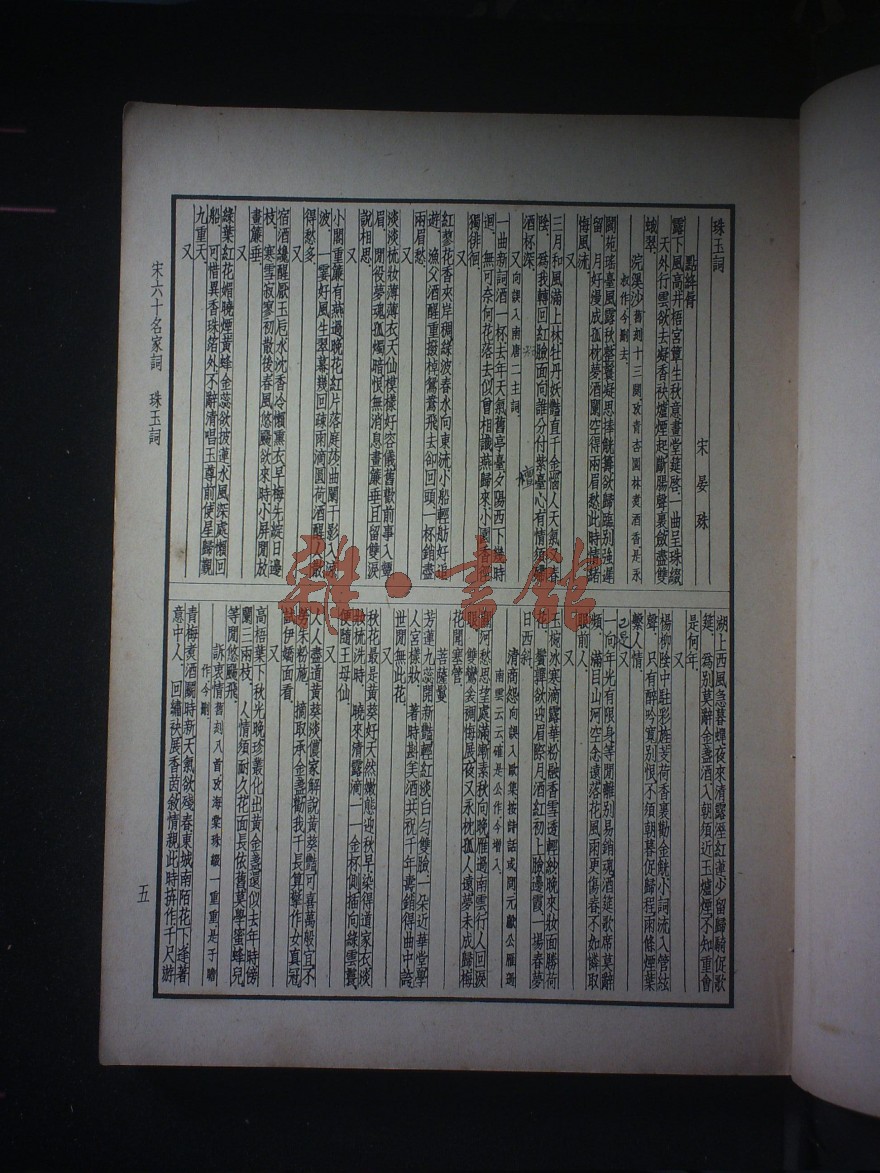 珠玉詞
宋 晏 殊
點絳脣
露下風高井梧宮簟生秋意畫堂筵啓一曲呈珠綴
天外行雲欲去凝香袂爐煙起斷腸聲裏斂盡雙
蛾翠
浣溪沙舊刻十三闋攷青杏園林煑酒香是永
叔作今刪去
閬苑瑤臺風露秋整鬟凝思捧觥籌欲歸臨別強遲
留 月好謾成孤枕夢酒闌空得兩眉愁此時情緒
悔風流
又
三月和風滿上林牡丹妖豔直千金惱人天氣又春
陰 爲我轉回紅臉面向誰分付紫臺心有情須殢
酒杯深
又向誤入南唐二主詞
一曲新詞酒一杯去年天氣舊亭臺夕陽西下幾時
迴 無可奈何花落去似曾相識燕歸來小園香徑
獨徘徊
又
紅蓼花香夾岸稠綠波春水向東流小船輕舫好追
遊 漁父酒醒重撥棹鴛鴦飛去卻回頭一杯銷盡
兩眉愁
又
淡淡梳妝薄薄衣天仙模樣好容儀舊歡前事入顰
眉 閒役夢魂孤燭暗恨無消息畫簾垂且留雙淚
說相思
又
小閣重簾有燕過晚花紅片落庭莎曲闌干影入涼
波 一霎好風生翠幕幾回疎雨滴圓荷酒醒人散
得愁多
又
宿酒纔醒厭玉卮水沈香冷懶熏衣早梅先綻日邊
枝 寒雪寂寥初散後春風悠颺欲來時小屏閒放
畫簾垂
又
綠葉紅花媚曉煙黃蜂金蕊欲披蓮水風深處懶回
船 可惜異香珠箔外不辭清唱玉尊前使星歸覲
九重天
又
湖上西風急暮蟬夜來清露溼紅蓮少留歸騎促歌
筵 爲別莫辭金盞酒入朝須近玉爐煙不知重會
是何年
又
楊柳陰中駐彩旌芰荷香裏勸金觥小詞流入管絃
聲 只有醉吟寬別恨不須朝暮促歸程雨條煙葉
繫人情
又
一向年光有限身等閒離別易銷魂酒筵歌席莫辭
頻 滿目山河空念遠落花風雨更傷春不如憐取
眼前人
又
玉椀冰寒滴露華粉融香雪透輕紗晚來妝面勝荷
花 鬢嚲欲迎眉際月酒紅初上臉邊霞一場春夢
日西斜
清商怨向誤入歐集按詩話或問元獻公雁過
南雲云云確是公作今增入
關河愁思望處滿漸素秋向晚雁過南雲行人回淚
眼 雙鸞衾裯悔展夜又永枕孤人遠夢未成歸梅
花聞塞管
菩薩蠻
芳蓮九蕊開新豔輕紅淡白勻雙臉一朵近華堂學
人宮樣妝 看時斟美酒共祝千年壽銷得曲中誇
世間無此花
又
秋花最是黃葵好天然嫩態迎秋早染得道家衣淡
妝梳洗時 曉來清露滴一一金杯側插向綠雲鬟
便隨王母仙
又
人人盡道黃葵淡儂家解說黃葵豔可喜萬般宜不
勞朱粉施 摘取承金盞勸我千長算擎作女真冠
試伊嬌面看
又
高梧葉下秋光晚珍叢化出黃金盞還似去年時傍
闌三兩枝 人情須耐久花面長依舊莫學蜜蜂兒
等閒悠颺飛
訴衷情舊刻八首攷海棠珠綴一重重是子瞻
作今刪
青梅煑酒鬬時新天氣欲殘春東城南陌花下逢著
意中人 回繡袂展香茵敘情親此時拚作千尺游
宋六十名家詞 珠玉詞
五
雜·書館